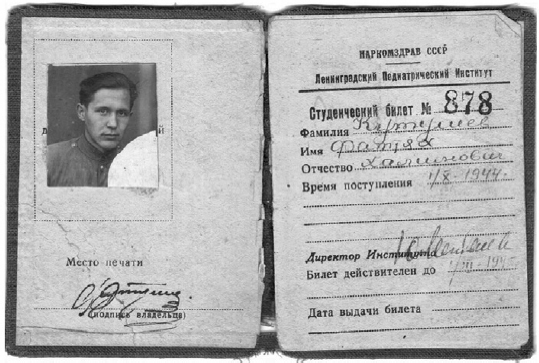 Место печати
(подпись владельца)
НАРКОМЗДРАВ СССР
Ленинградский Педиатрический Институт
Студенческий билет № 878
Фамилия
Имя Фатых
Отчество
Время поступления 1/X - 1944.
Директор Института
Билет действителен до
Дата выдачи билета